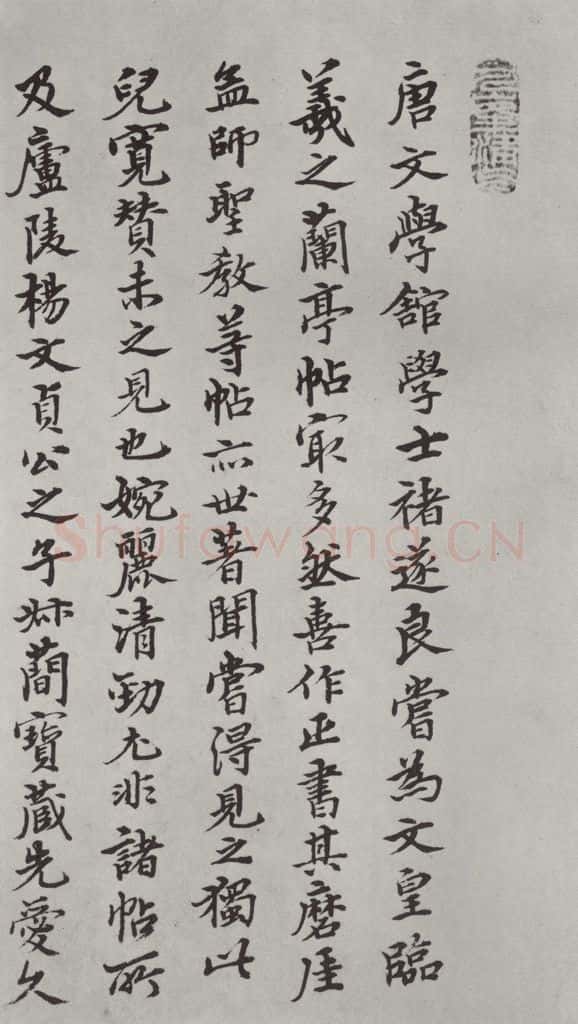 唐文學舘學士褚遂良嘗為文皇臨
羲之蘭亭帖冣多然喜作正書其磨厓
孟師聖教等帖亦世著聞嘗得見之獨此
兒寬贊未之見也婉麗清勁尤非諸帖所
及廬陵楊文貞公之子叔蕳寶藏先愛久
Shufawang.CN